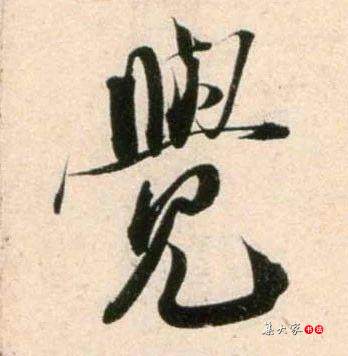 覺
集大家书法